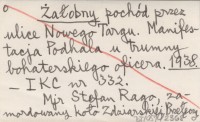 o Żałobny pochód przez
ulice Nowego Targu. Manifes-
tacja Podhala u trumny
bohaterskiego oficera. 1938
— IKC nr 332.
Mjr Stefan Rago, za-
mordowany koło Zdziarskiej Przełęczy